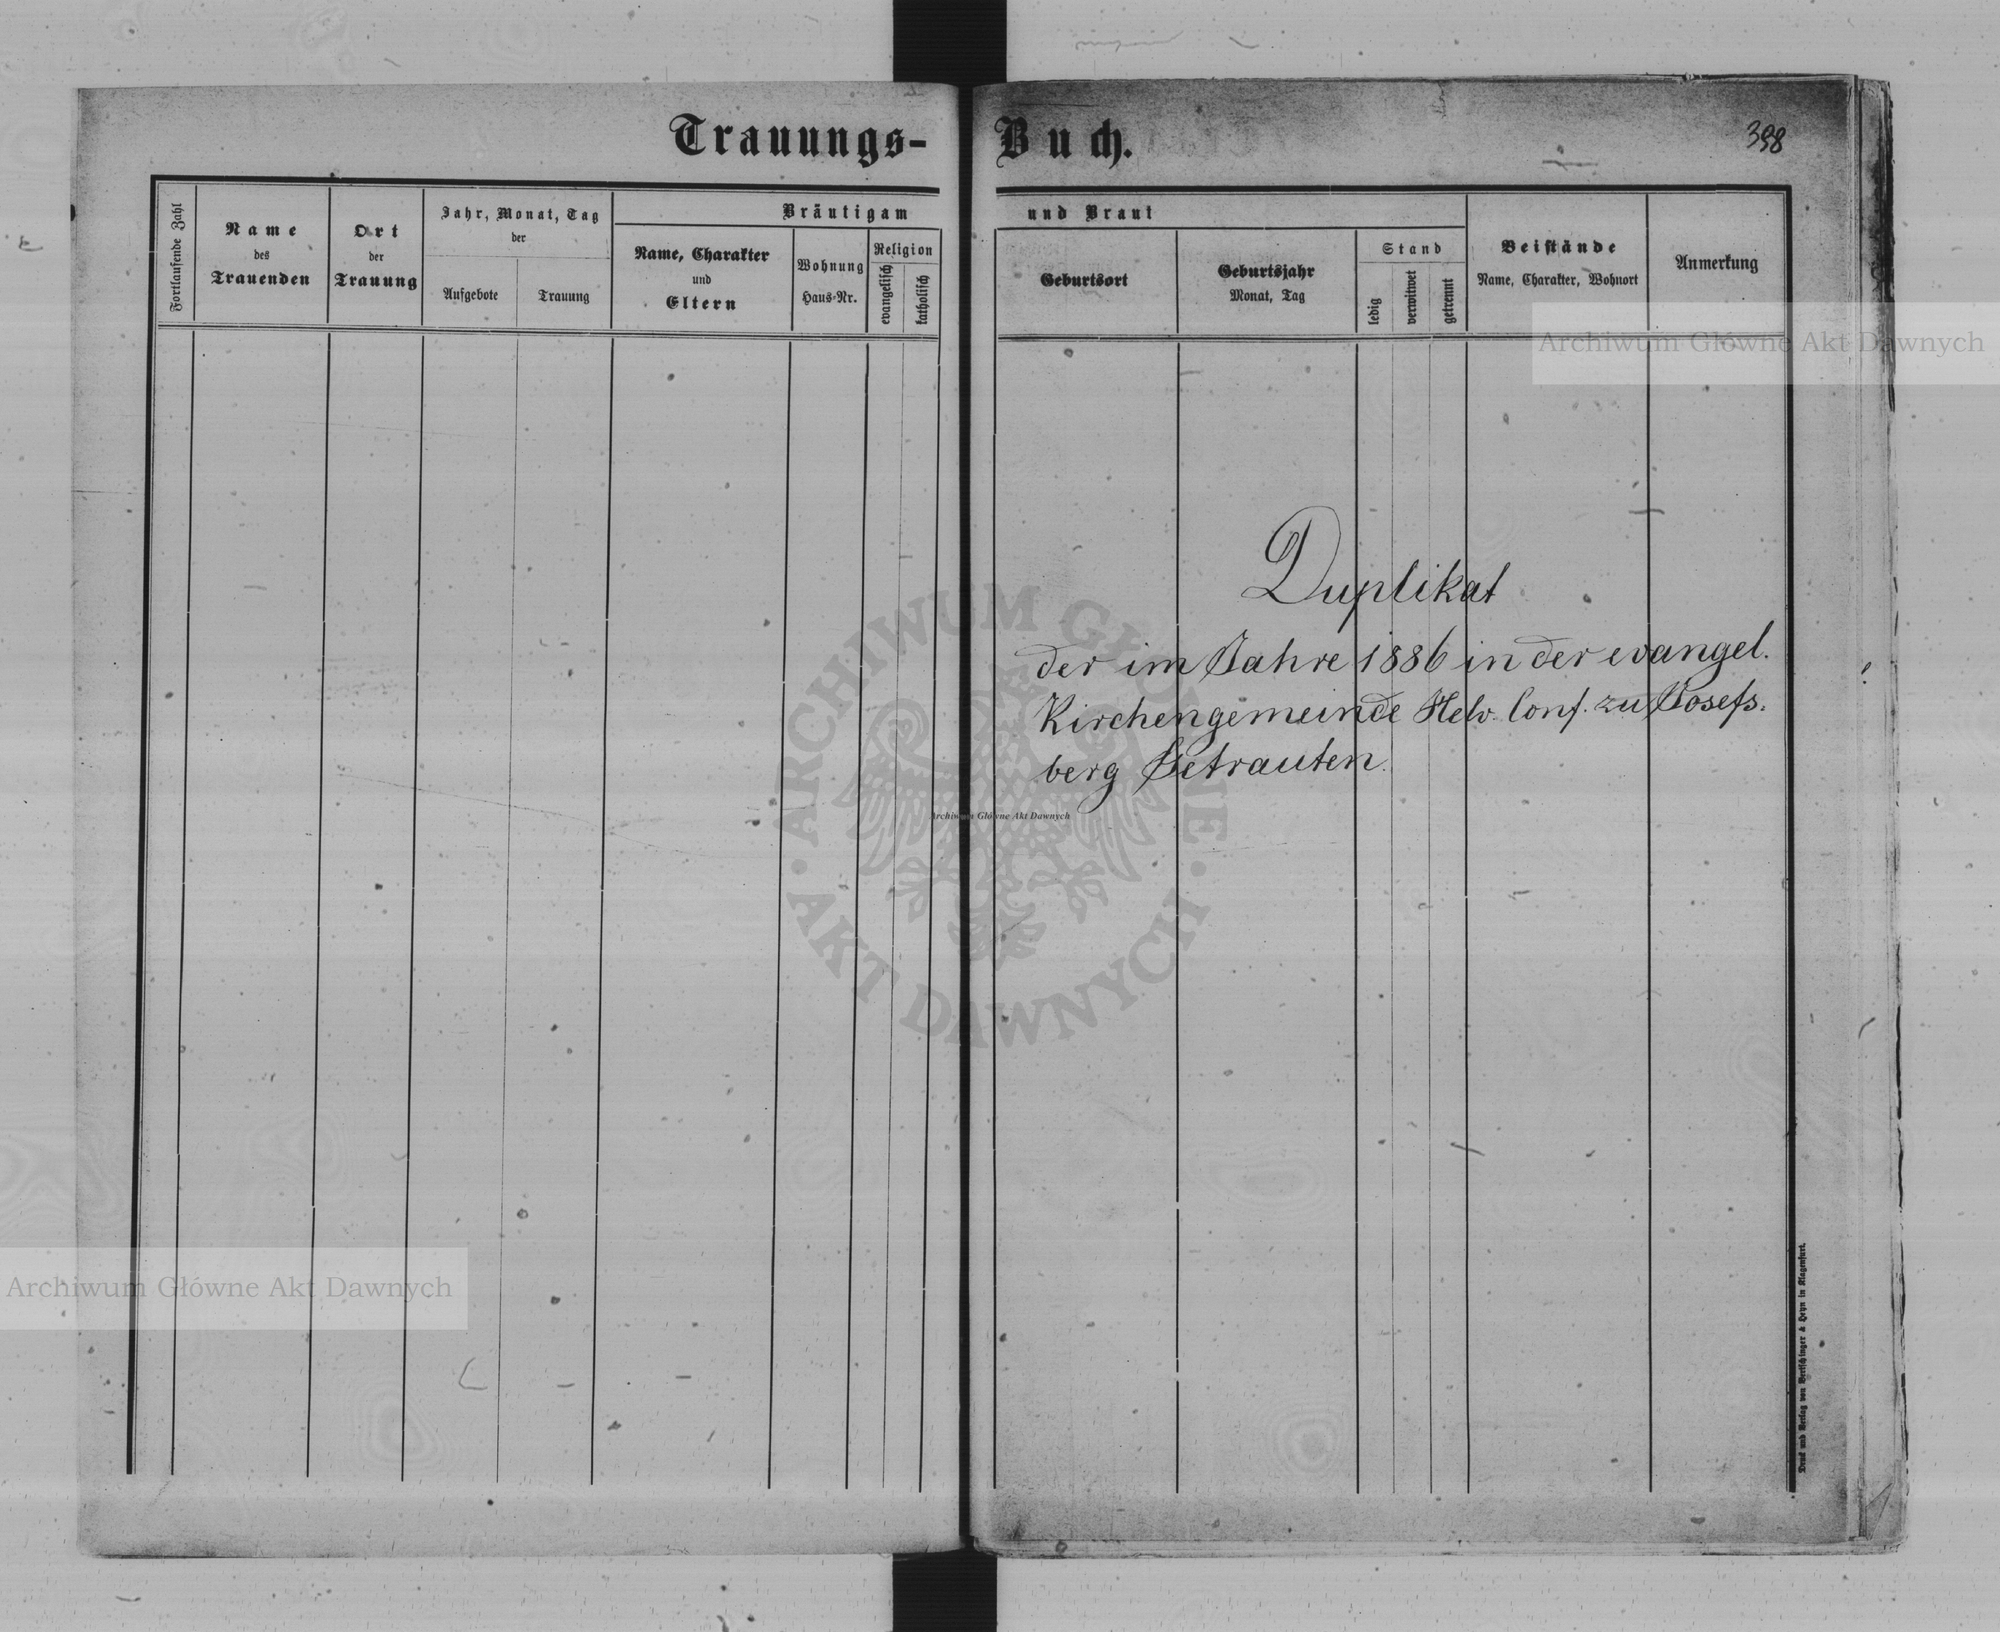 Trauungs-Buch.
398
Fortlaufende Zahl
Name
des
Trauenden
Ort
der
Trauung
Jahr, Monat, Tag
der
Aufgebote
Trauung
Bräutigam und Braut
Name, Charakter
und
Eltern
Wohnung
Haus-Nr.
Religion
evangelisch
katholisch
Geburtsort
Geburtsjahr
Monat, Tag
Stand
ledig
verwitwet
getrennt
Beistände
Name, Charakter, Wohnort
Anmerkung
Archiwum Główne Akt Dawnych
Duplikat
der im Jahre 1886 in der evangel.
Kirchengemeinde Helv. Conf. zu Josefs-
berg Getrauten.
ARCHIWUM GŁÓWNE · AKT DAWNYCH ·
Archiwum Główne Akt Dawnych
Archiwum Główne Akt Dawnych
Druck und Verlag von Bertschinger & Heyn in Klagenfurt.